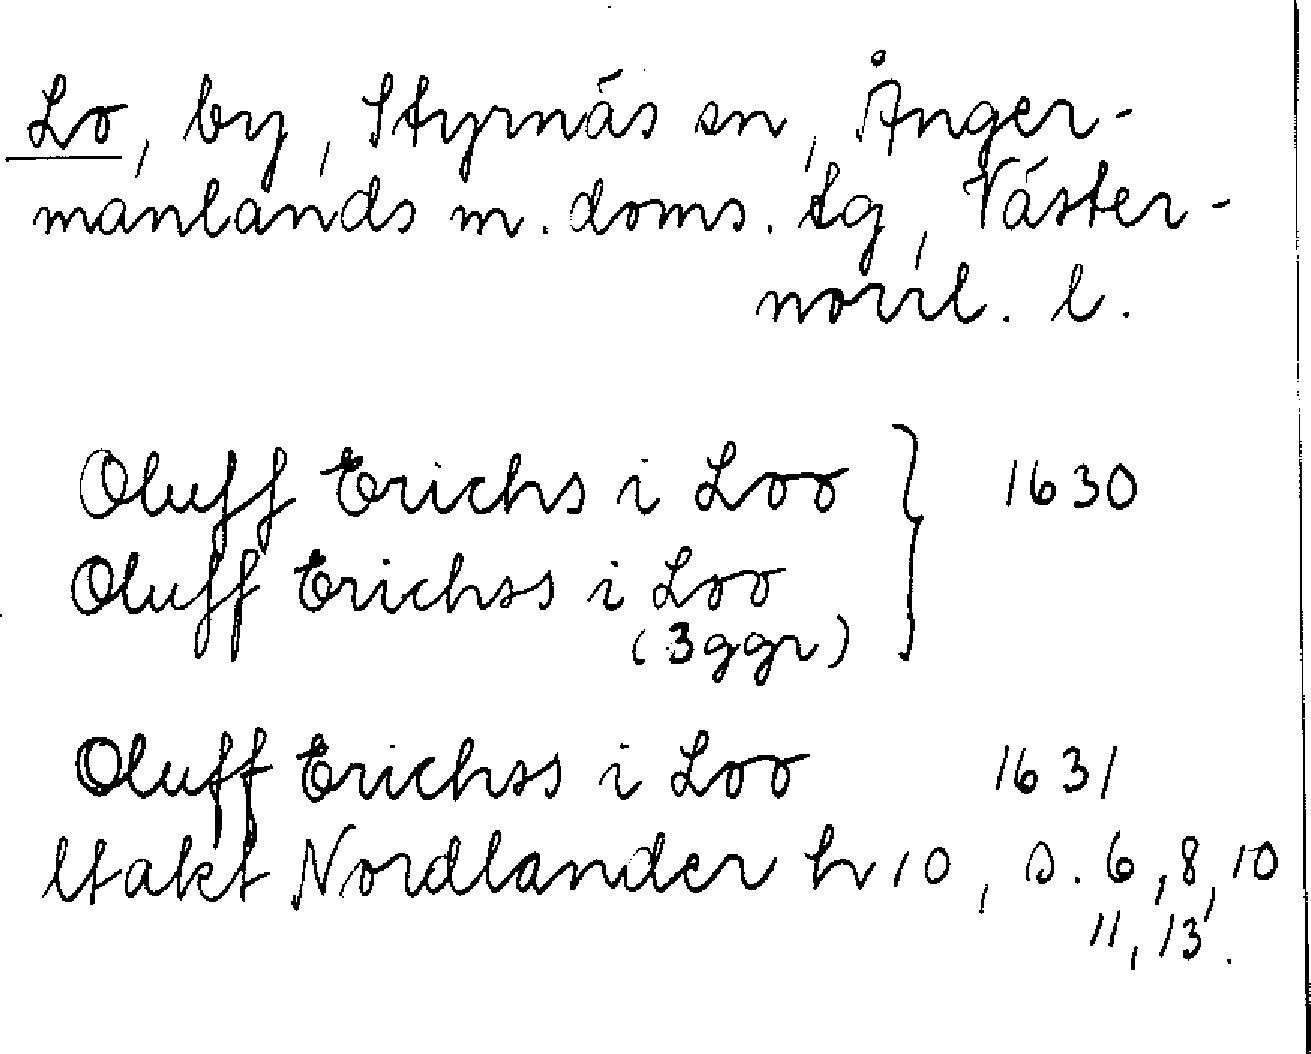 Lo, by, Styrnäs sn, Ånger-
manlands m. doms. tg, Väster-
norrl. l.
Oluff Erichs i Loo } 1630
Oluff Erichss i Loo
(3 ggr)
Oluff Erichss i Loo 1631
Utakt Nordlander h 10, s. 6, 8, 10
11, 13.